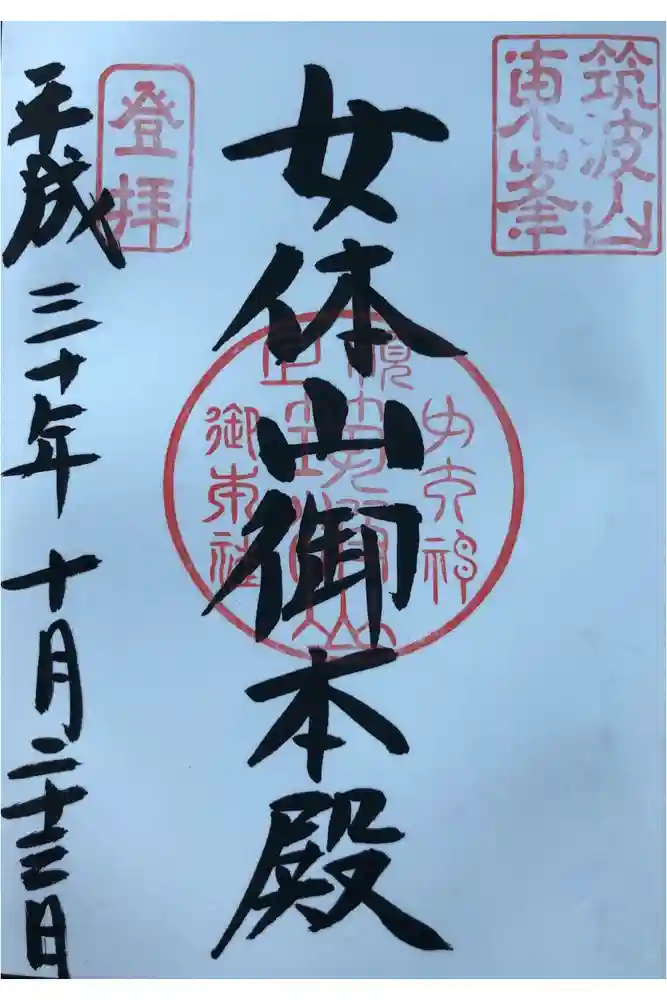 筑波山
東峯
女体山御本殿
女大神
御本社
登拝
平成三十年十月二十三日